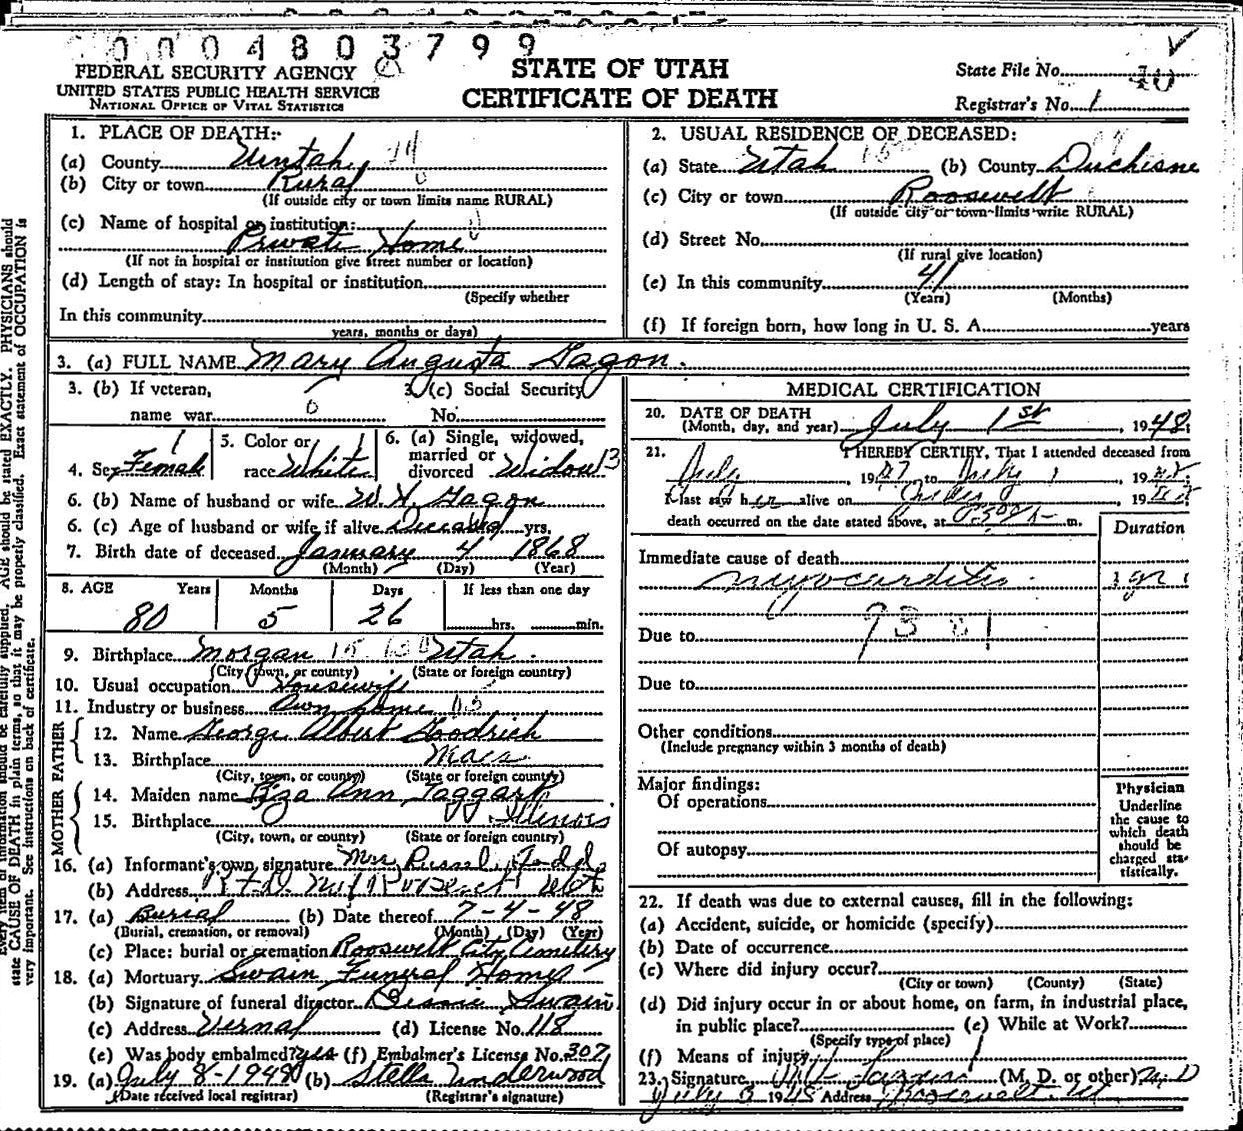 0004803799
FEDERAL SECURITY AGENCY
UNITED STATES PUBLIC HEALTH SERVICE
NATIONAL OFFICE OF VITAL STATISTICS
STATE OF UTAH
CERTIFICATE OF DEATH
State File No. 40
Registrar's No. 1
1. PLACE OF DEATH:-
(a) County Uintah 24
(b) City or town Rural
(If outside city or town limits name RURAL)
(c) Name of hospital or institution:
Private Home
(If not in hospital or institution give street number or location)
(d) Length of stay: In hospital or institution
(Specify whether
In this community
years, months or days)
2. USUAL RESIDENCE OF DECEASED:
(a) State Utah (b) County Duchesne
(c) City or town Roosevelt
(If outside city or town limits write RURAL)
(d) Street No.
(If rural give location)
(e) In this community 41
(Years) (Months)
(f) If foreign born, how long in U. S. A. years
3. (a) FULL NAME Mary Augusta Gagon.
3. (b) If veteran,
name war 0
3. (c) Social Security
No.
4. Sex Female 1
5. Color or
race White 1
6. (a) Single, widowed,
married or
divorced Widow 3
6. (b) Name of husband or wife W. H. Gagon
6. (c) Age of husband or wife if alive Deceased yrs.
7. Birth date of deceased January 4 1868
(Month) (Day) (Year)
8. AGE Years Months Days If less than one day
80 5 26 hrs. min.
9. Birthplace Morgan Utah
(City, town, or county) (State or foreign country)
10. Usual occupation Housewife
11. Industry or business Own home
FATHER
12. Name George Albert Goodrich
13. Birthplace Mass
(City, town, or county) (State or foreign country)
MOTHER
14. Maiden name Eliza Ann Taggart
15. Birthplace Illinois
(City, town, or county) (State or foreign country)
16. (a) Informant's own signature Mrs Russel Todd
(b) Address Roosevelt Utah
17. (a) Burial (b) Date thereof 7-4-48
(Burial, cremation, or removal) (Month) (Day) (Year)
(c) Place: burial or cremation Roosevelt City Cemetery
18. (a) Mortuary Swain Funeral Home
(b) Signature of funeral director Bessie Swain
(c) Address Vernal (d) License No. 118
(e) Was body embalmed? yes (f) Embalmer's License No. 307
19. (a) July 8-1948 (b) Stella Underwood
(Date received local registrar) (Registrar's signature)
MEDICAL CERTIFICATION
20. DATE OF DEATH
(Month, day, and year) July 1st, 1948;
21. I HEREBY CERTIFY, That I attended deceased from
July, 1947 to July 1, 1948
I last saw her alive on 1948
death occurred on the date stated above, at m.
Duration
Immediate cause of death
myocarditis 1 yr
Due to
Due to
Other conditions
(Include pregnancy within 3 months of death)
Major findings:
Of operations
Of autopsy
Physician
Underline
the cause to
which death
should be
charged sta-
tistically.
22. If death was due to external causes, fill in the following:
(a) Accident, suicide, or homicide (specify)
(b) Date of occurrence
(c) Where did injury occur?
(City or town) (County) (State)
(d) Did injury occur in or about home, on farm, in industrial place,
in public place? (e) While at Work?
(Specify type of place)
(f) Means of injury
23. Signature (M. D. or other) M. D
July 3 1948 Address Roosevelt Ut
state CAUSE OF DEATH in plain terms, so that it may be properly classified. Exact statement of OCCUPATION is
very important. See instructions on back of certificate.